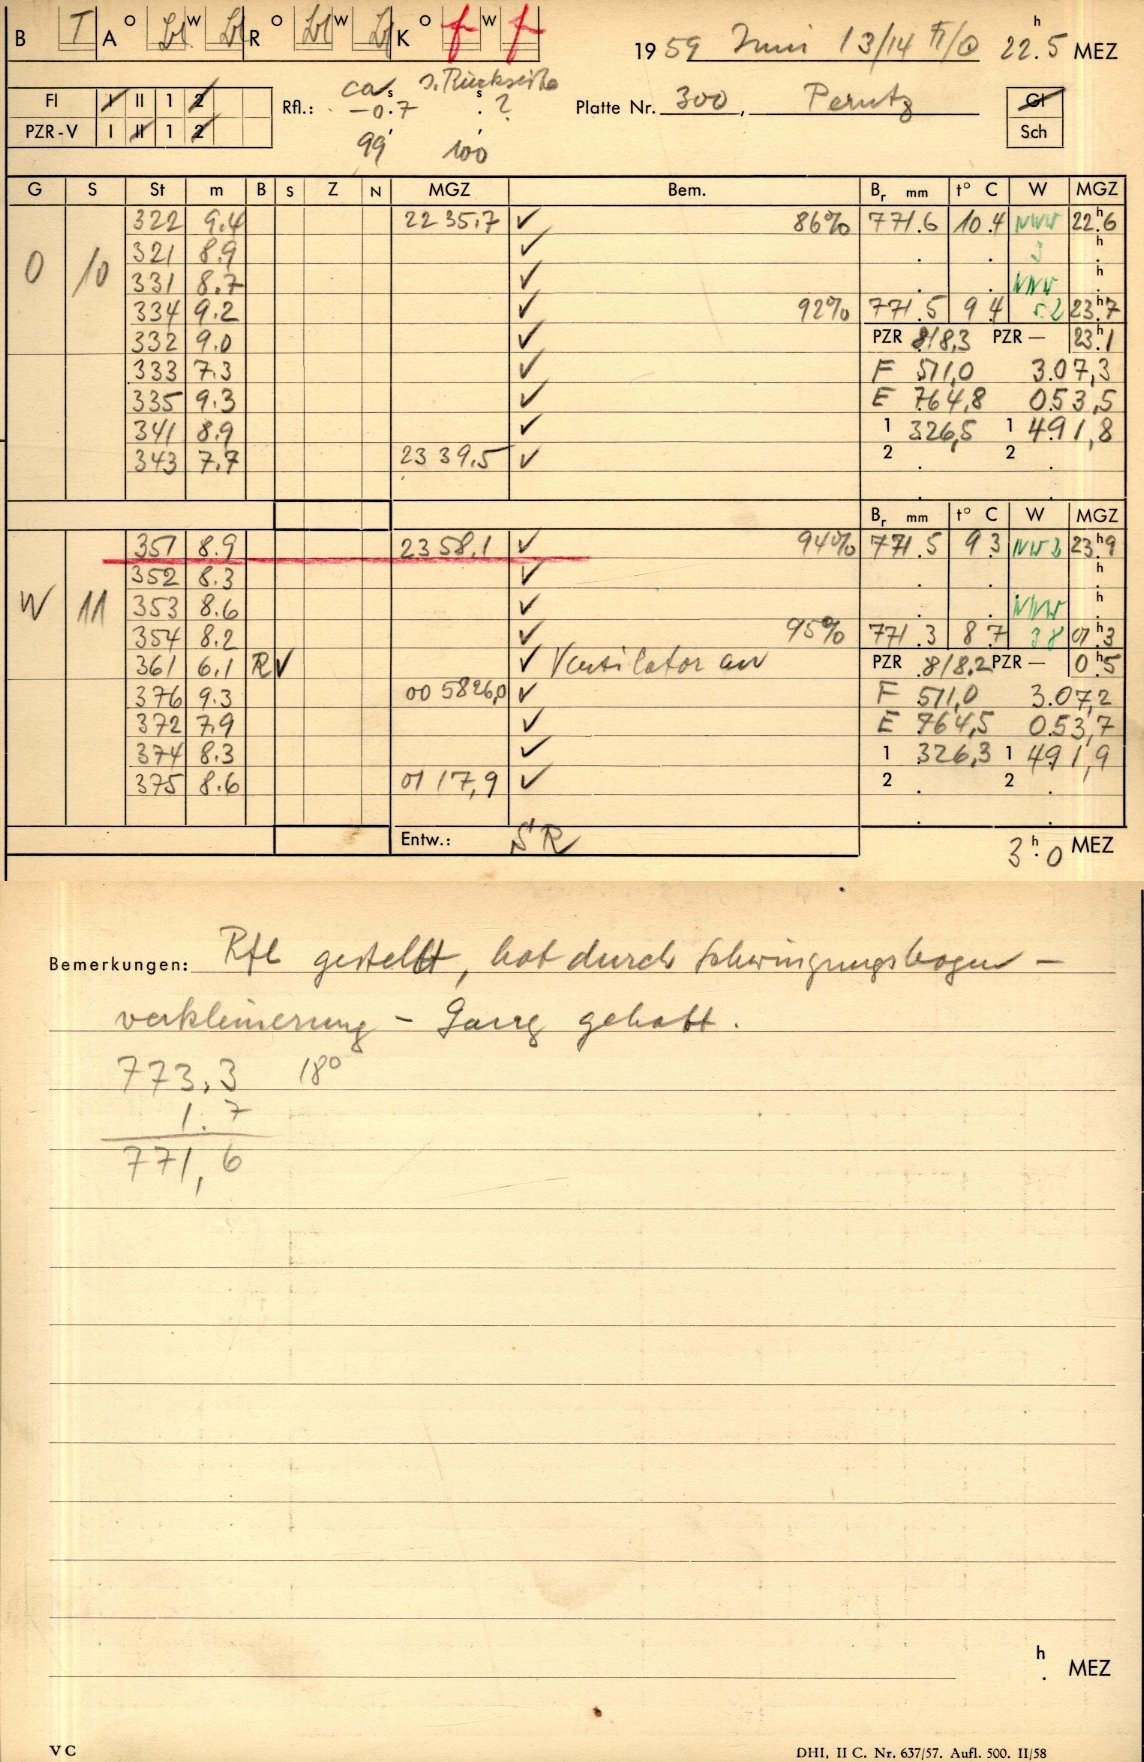 B T A O Bl W Bl R O Bl W Bl K O f W f 1959 Juni 13/14 22.5 h MEZ
ca s s. Rückseite
Fl I II 1 2 Rfl.: -0.7 . ? s Platte Nr. 300, Perutz Gl
PZR-V I II 1 2 Sch
99 100
G S St m B S Z N MGZ Bem. Br mm t° C W MGZ
O 10 322 9.4 22 35,7 ✓ 86% 771.6 10.4 NWW 22.h6
321 8.9 ✓ . . 3 .h
331 8.7 ✓ . . NNW .h
334 9.2 ✓ 92% 771.5 9 4 5.2 23.h7
332 9.0 ✓ PZR 8/8,3 PZR — 23.h1
333 7.3 ✓ F 511,0 3.07,3
335 9.3 ✓ E 764,8 053,5
341 8.9 ✓ 1 326,5 1 491,8
343 7.7 23 39,5 ✓ 2 . 2 .
Br mm t° C W MGZ
351 8.9 23 58,1 ✓ 94% 771.5 9 3 NW 3 23.h9
352 8.3 ✓ . . .h
W 11 353 8.6 ✓ . . NNW .h
354 8.2 ✓ 95% 771.3 8 7 3 8 01.h3
361 6.1 R ✓ ✓ Ventilator an PZR 8/8.2 PZR — 0.h5
376 9.3 00 5826,0 ✓ F 511,0 3.07,2
372 7.9 ✓ E 764,5 053,7
374 8.3 ✓ 1 326,3 1 491,9
375 8.6 01 17,9 ✓ 2 . 2 .
Entw.: SR 3.h0 MEZ
Bemerkungen: Rfl gestellt, hat durch Schwingungsbogen –
verkleinerung – Gang gehabt.
773,3 18°
1.7
771,6
h . MEZ
VC DHI, II C. Nr. 637/57. Aufl. 500. II/58